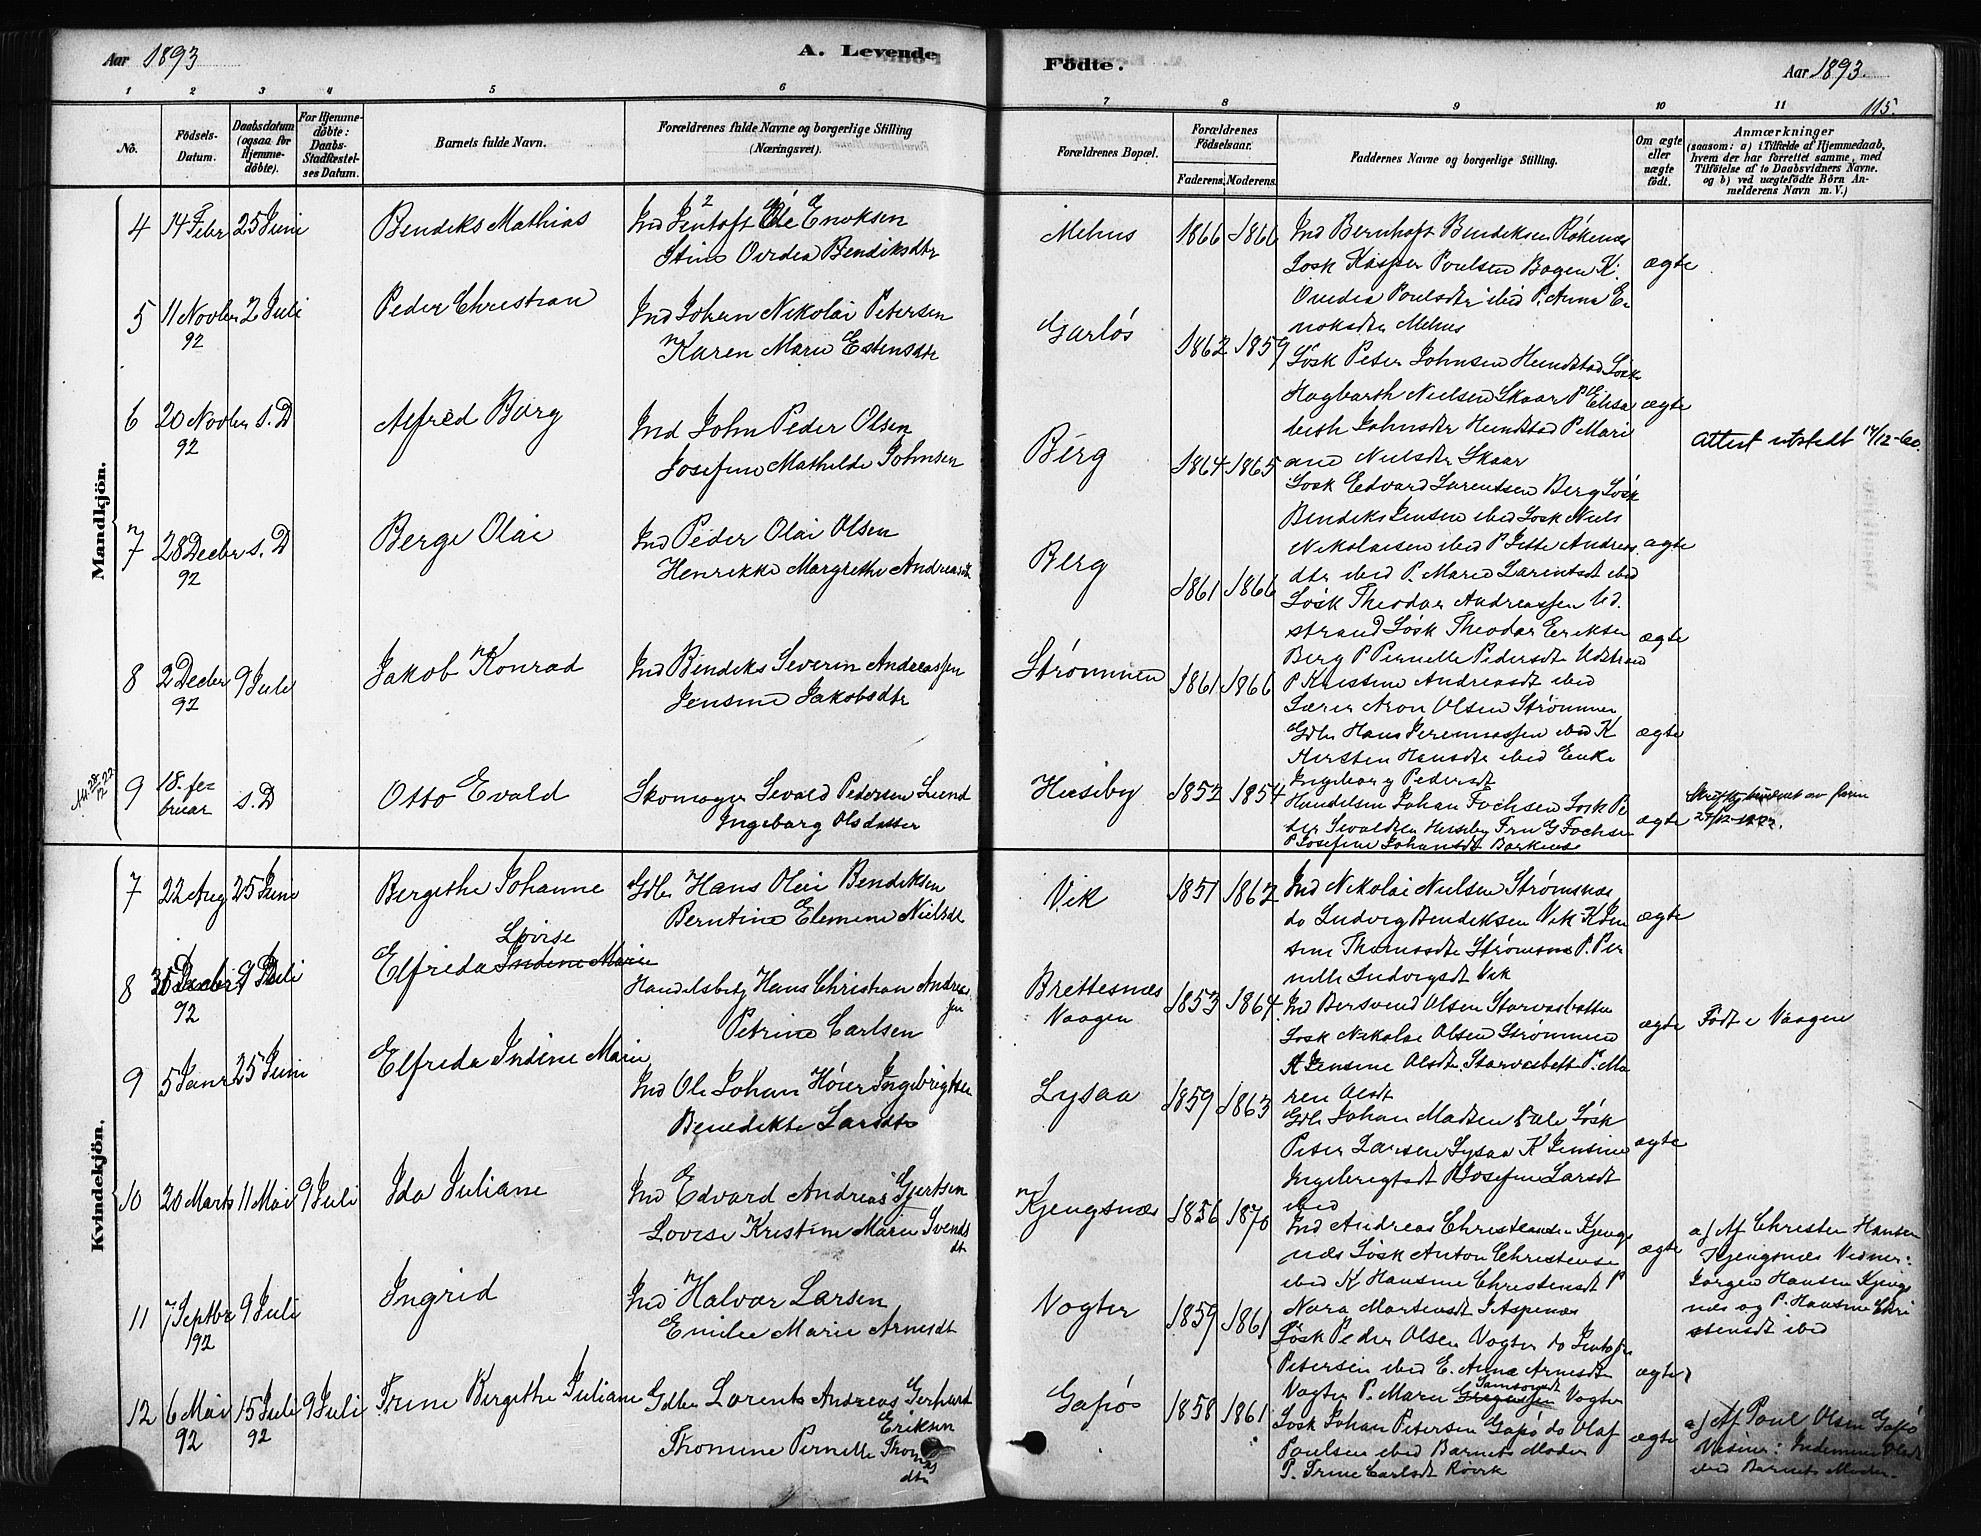 Aar 1893
A. Levende
Födte.
Aar 1893.
115.
1 2 3 4 5 6 7 8 9 10 11
No.
Födsels-Datum.
Daabsdatum (ogsaa for Hjemme-döbte).
For Hjemme-döbte: Daabs-Stadfæstel-ses Datum.
Barnets fulde Navn.
Forældrenes fulde Navne og borgerlige Stilling (Næringsvei).
Forældrenes Bopæl.
Forældrenes Födselsaar.
Faderens. Moderens.
Faddernes Navne og borgerlige Stilling.
Om ægte eller uægte födt.
Anmærkninger
(saasom: a) i Tilfælde af Hjemmedaab, hvem der har forrettet samme, med Tilföielse af to Daabsvidners Navne. og b) ved uægtefödte Börn An-melderens Navn m. V.)
Mandkjön.
4 14 Febr 25 Juni Bendiks Mathias
Ind Jentoft Ole Enoksen
Stine Ovidia Bendiksdtr
Melnes 1866 1866
Ind Bernhoft Bendiksen Rökenæs
Løsk Kasper Poulsen Bogen K.
Ovidia Poulsdtr ibid P. Anna E-
noksdtr Melnes
ægte
5 11 Novbr 92 2 Juli Peder Christian
Ind Johan Nikolai Petersen
Karen Marie Estensdtr
Garløs 1862 1859
Løsk Peter Johnsen Hundstad Løsk
Hagbarth Nielsen Skaar P Elisa
beth Johnsdtr Hundstad P Mari
ane Nielsdtr Skaar
ægte
6 20 Novbr 92 s. D Alfred Borg
Ind John Peder Olsen
Josefine Mathilde Johnsen
Berg 1864 1865
Løsk Edvard Larentsen Berg Løsk
Bendiks Jensen ibid Løsk Niels
Nikolaisen ibid P Jette Andreas
dtr ibid P. Marie Larentsdt ibid
ægte
Attest utstedt 17/12-60.
7 28 Decbr 92 s. D Berge Olai
Ind Peder Olai Olsen
Henrikke Margrethe Andreasdtr
Berg 1861 1866
Løsk Theodor Andreassen Ud.
strand Løsk Theodor Eriksen
Berg P Pernelle Pedersdtr Udstrand
P Kristine Andreasdt ibid
ægte
8 2 Decbr 92 9 Juli Jakob Konrad
Ind Bendiks Severin Andreassen
Jensine Jakobsdtr
Strømmen 1861 1866
Lærer Aron Olsen Strømmen
Gdbr Hans Jeremiassen ibid K
Kirsten Hansdtr ibid Enke
Ingeborg Pedersdt
ægte
9 18. februar s. D Otto Evald
Skomager Sevald Pedersen Lund
Ingeborg Olsdatter
Husby 1852 1854
Handelsm Johan Fochsen Løsk Pe
der Sevaldsen Husby Fru G Fochsen
P Josefine Johansdt
ægte
Kvindekjön.
7 22 Aug 25 Juni Bergithe Johanne
Gdbr Hans Olai Bendiksen
Berntine Elemine Nielsdt
Vik 1851 1862
Ind Nikolai Nielsen Strømsnæs
do Ludvig Bendiksen Vik K Jen
sine Thomasdt Strømsnæs P. Per
nille Ludvigsdt Vik
ægte
8 Decbr 92 9 Juli Elfrida Lovise Indine Marie
Handelsbetj Hans Christian Andreas
sen
Petrine Carlsen
Brettesnæs
Vaagen 1853 1864
Ind Bersvend Olsen Storvasbotten
Løsk Nikolai Olsen Strømmen
K Jensine Olsdt. Storvasbott P. Ma
ren Olsdt
ægte
Født i Vaagen
9 5 Janr 25 Juni Elfrida Indine Marie
Ind Ole Johan Høier Ingebrigtsen
Benedikte Larsdtr
Lysaa 1859 1863
Gdbr Johan Madsen Løsk
Peter Larsen Lysaa K Jensine
Ingebrigtsdt P Josefine Larsdt
ibid
ægte
10 20 Marts 11 Mai 9 Juli Ida Juliane
Ind Edvard Andreas Gjertsen
Lovise Kristine Marie Svends
dtr
Kjengsnæs 1856 1870
Ind Andreas Christensen Kjengs
næs Løsk Anton Christense
ibid K Hansine Christensdt P
Nora Martensdt
ægte
a) Af Christen Hansen
Kjengsnæs Vidner:
Jørgen Hansen Kjengs
næs og P. Hansine Chri
stensdt ibid
11 7 Septbr 92 9 Juli Ingrid
Ind Halvor Larsen
Emilie Marie Arnesdt
Vogter 1859 1861
Løsk Peder Olsen Vogter do Jentoft
Petersen ibid E. Anna Arnesdtr
Vogter P. Marie Samsonsdt Vogter
ægte
12 6 Mai 92 15 Juli 92 9 Juli Trine Bergithe Juliane
Gdbr Lorents Andreas Gerhard
Eriksen
Thomine Pernille Thomas
dtr
Gapøs 1858 1861
Løsk Johan Petersen Gapø do Olaf
Poulsen ibid Barnets Moder
P. Trine Carlsdt
ægte
a) Af Poul Olsen Gapø
Vidner:
ibid Barnets Moder.